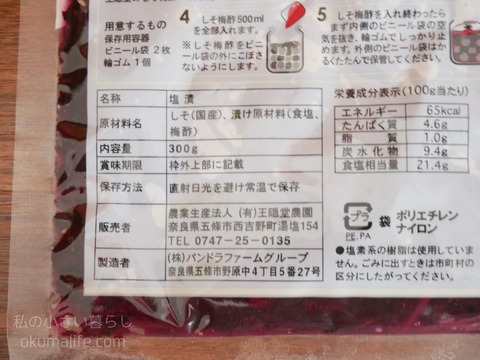 用意するもの
保存用容器
ビニール袋 2枚
輪ゴム 1個
4 しそ梅酢500ml
を全部入れます。
※しそ梅酢をビニ
ール袋の外にこぼさ
ないようにします。
5 しそ梅酢を入れ終わったら
まず内側のビニール袋の空
気を抜き、輪ゴムでしっかり止
めます。外側のビニール袋はか
るくたたんで保管してください。
名称 塩漬
原材料名 しそ(国産)、漬け原材料(食塩、
梅酢)
内容量 300g
賞味期限 枠外上部に記載
保存方法 直射日光を避け常温で保存
販売者 農業生産法人 (有)王隠堂農園
奈良県五條市西吉野町湯塩154
TEL 0747-25-0135
製造者 (株)パンドラファームグループ
奈良県五條市野原中4丁目5番27号
栄養成分表示(100g当たり)
エネルギー 65kcal
たんぱく質 4.6g
脂質 1.0g
炭水化物 9.4g
食塩相当量 21.4g
プラ 袋 ポリエチレン
ナイロン
PE,PA
●塩素系の樹脂は使用していませ
ん。ごみに出すときは市町村の
区分にしたがってください。
私の小さい暮らし
okumalife.com